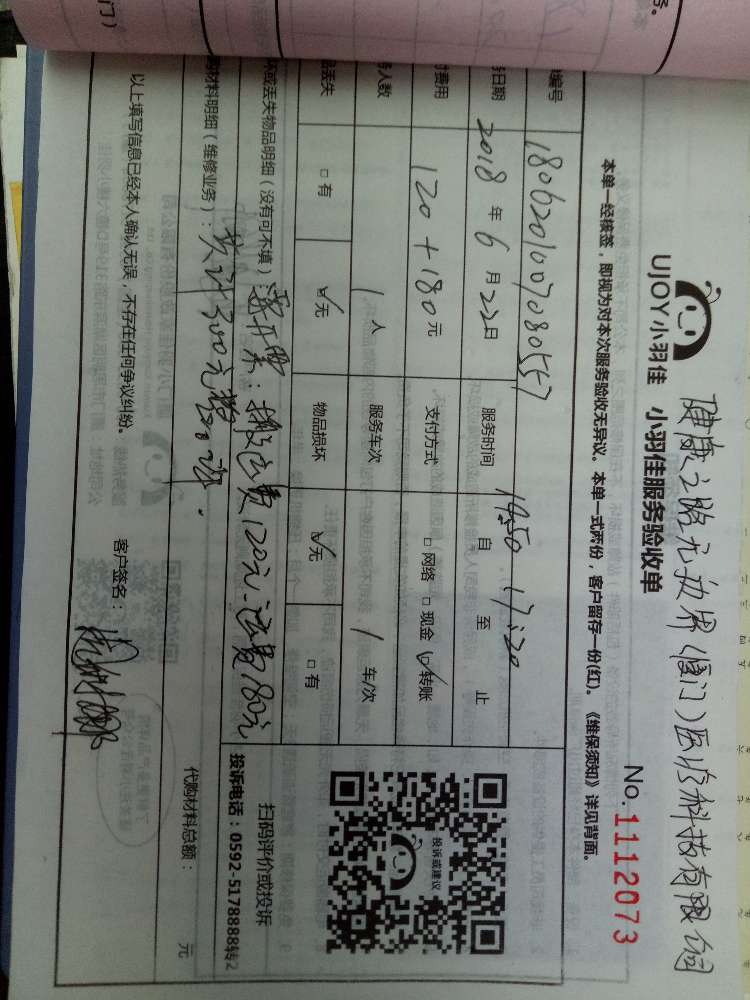 健康之路无边界(厦门)医疗科技有限公司
UJOY小羽佳 小羽佳服务验收单
No. 1112073
本单一经核签，即视为对本次服务验收无异议。本单一式两份，客户留存一份(红)。《维保须知》详见背面。
编号 1806201007080557
日期 2018 年 6 月 22 日 服务时间 14:50 自 17:20 至 止
费用 120+180 元 支付方式 □网络 □现金 ☑转账
人数 1 人 服务车次 1 车/次
丢失 □有 ☑无 物品损坏 ☑无 □有
坏或丢失物品明细（没有可不填）需开票：搬运费120元、运费180元
材料明细（维修业务）：共计300元整
代购材料总额： 元
以上填写信息已经本人确认无误，不存在任何争议纠纷。
客户签名：
投诉或建议
扫码评价或投诉
投诉电话：0592-5178888转2